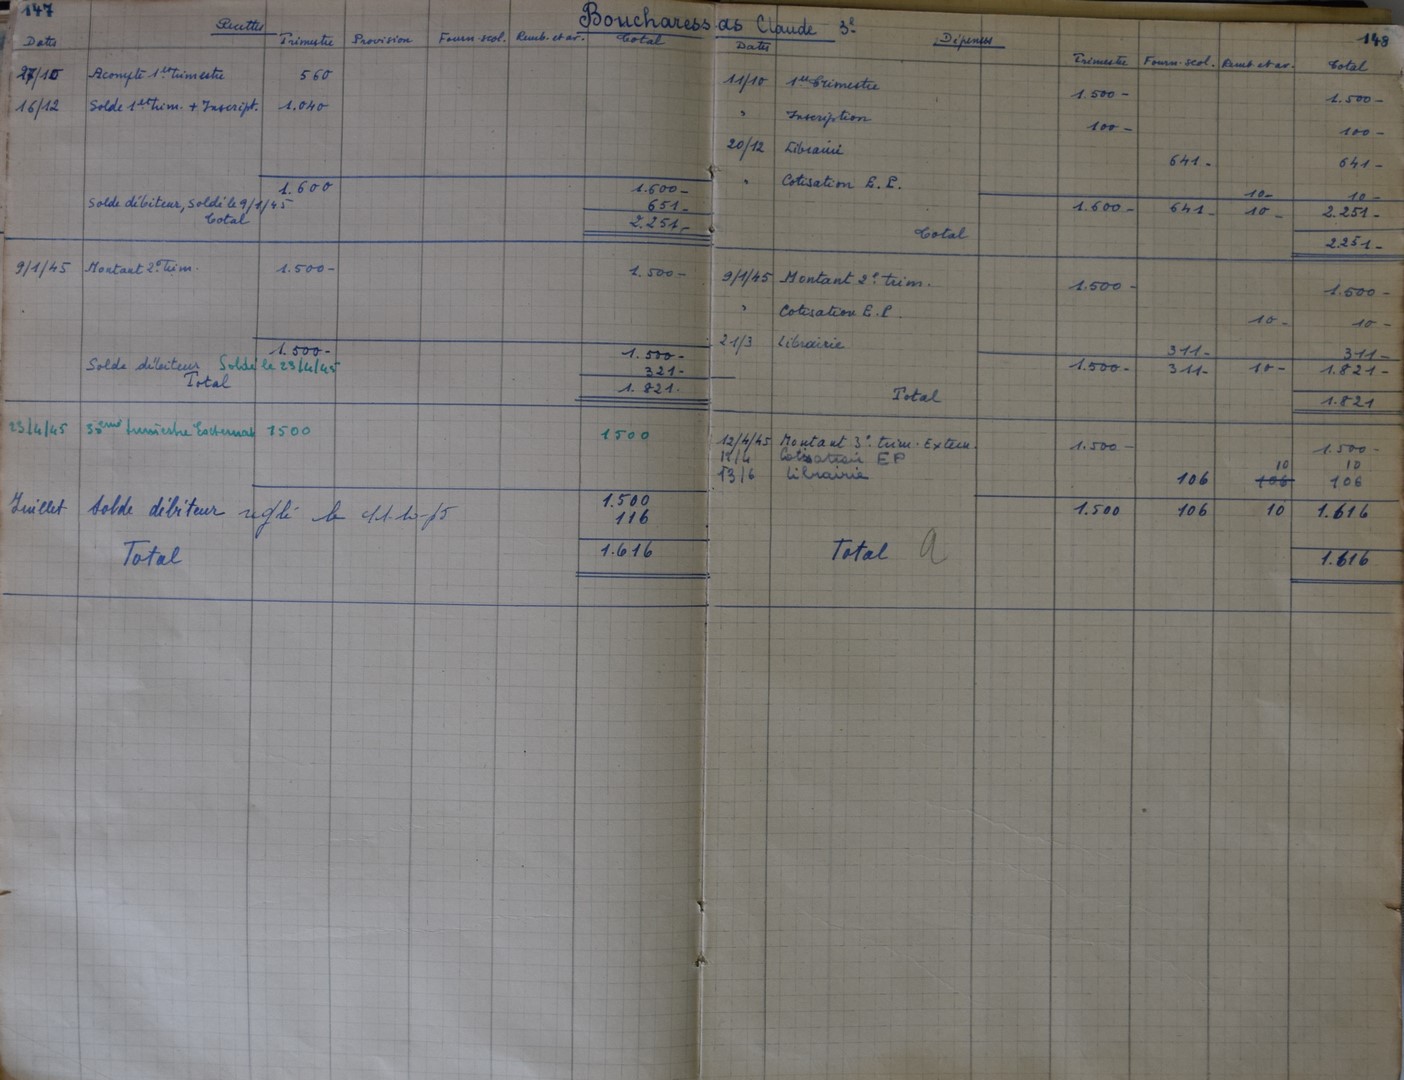 147
Boucharessas Claude 3e
148
Recettes
Dates Trimestre Provision Fourn. scol. Remb. et av. Total
27/10 Acompte 1er trimestre 560
16/12 Solde 1er trim. + Inscript. 1.040
1.600 1.600-
Solde débiteur, soldé le 9/1/45 651-
Total 2.251-
9/1/45 Montant 2e trim. 1.500- 1.500-
1.500- 1.500-
Solde débiteur Soldé le 23/4/45 321-
Total 1.821.
23/4/45 3ème trimestre Externat 1500 1500
1.500
Juillet Solde débiteur réglé le 116
Total 1.616
Dépenses
Dates Trimestre Fourn. scol. Remb. et av. Total
11/10 1er trimestre 1.500- 1.500-
" Inscription 100- 100-
20/12 Librairie 641- 641-
" Cotisation E.P. 10- 10-
1.600- 641- 10- 2.251-
Total 2251-
9/1/45 Montant 2e trim. 1.500- 1.500-
" Cotisation E.P. 10- 10-
21/3 Librairie 311- 311-
1.500- 311- 10- 1.821-
Total 1.821
12/4/45 Montant 3e trim. Extern. 1.500- 1.500-
Cotisation EP 10 10
13/6 Librairie 106 106 106
1.500 106 10 1.616
Total a 1.616